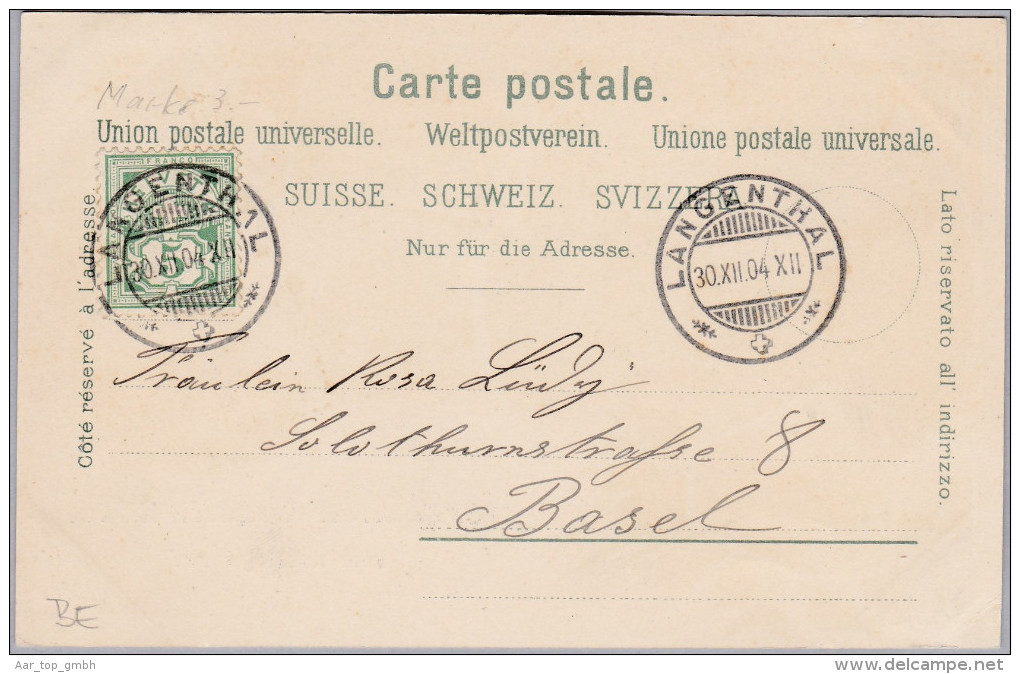 Marke 3.-
Carte postale.
Union postale universelle. Weltpostverein. Unione postale universale.
SUISSE. SCHWEIZ. SVIZZERA
Nur für die Adresse.
Côté réservé à l'adresse.
Lato riservato all' indirizzo.
FRANCO
5
LANGENTHAL
30.XII.04 XII
LANGENTHAL
30.XII.04 XII
Fräulein Rosa Lüdy
Solothurnstrasse 8
Basel
BE
Aar_top_gmbh
delcampe.net